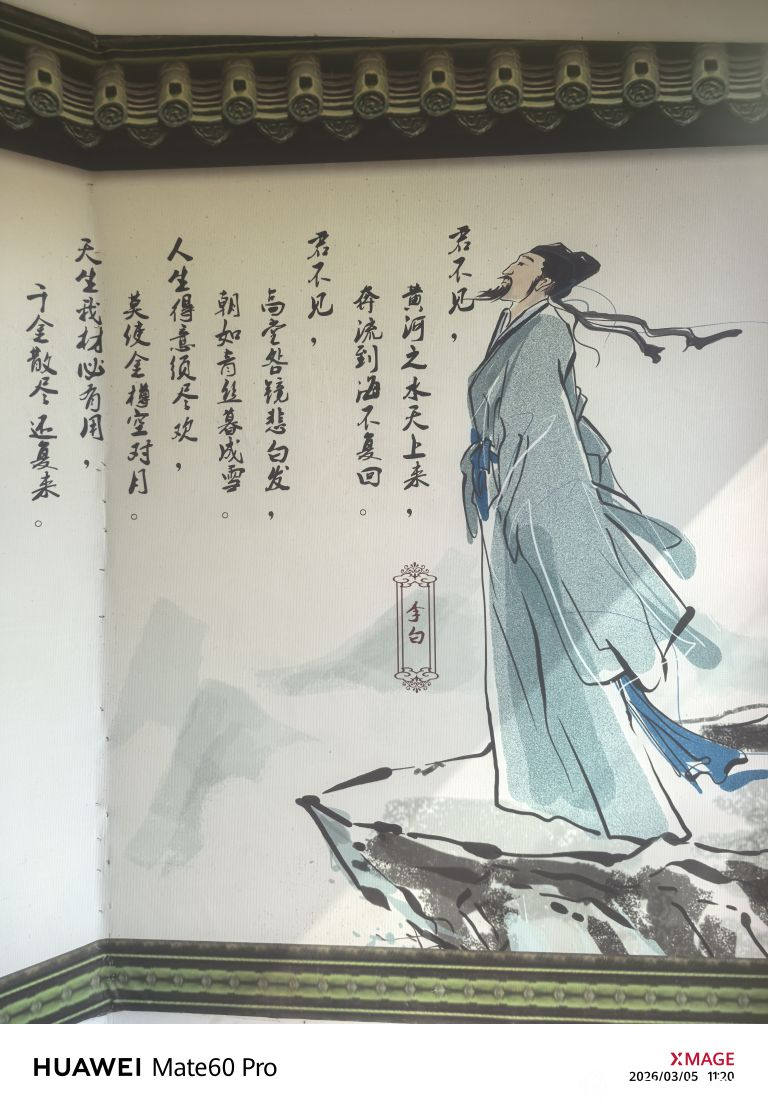 君不见，
黄河之水天上来，
奔流到海不复回。
君不见，
高堂明镜悲白发，
朝如青丝暮成雪。
人生得意须尽欢，
莫使金樽空对月。
天生我材必有用，
千金散尽还复来。
李白
HUAWEI Mate60 Pro
XMAGE
2026/03/05 11:20